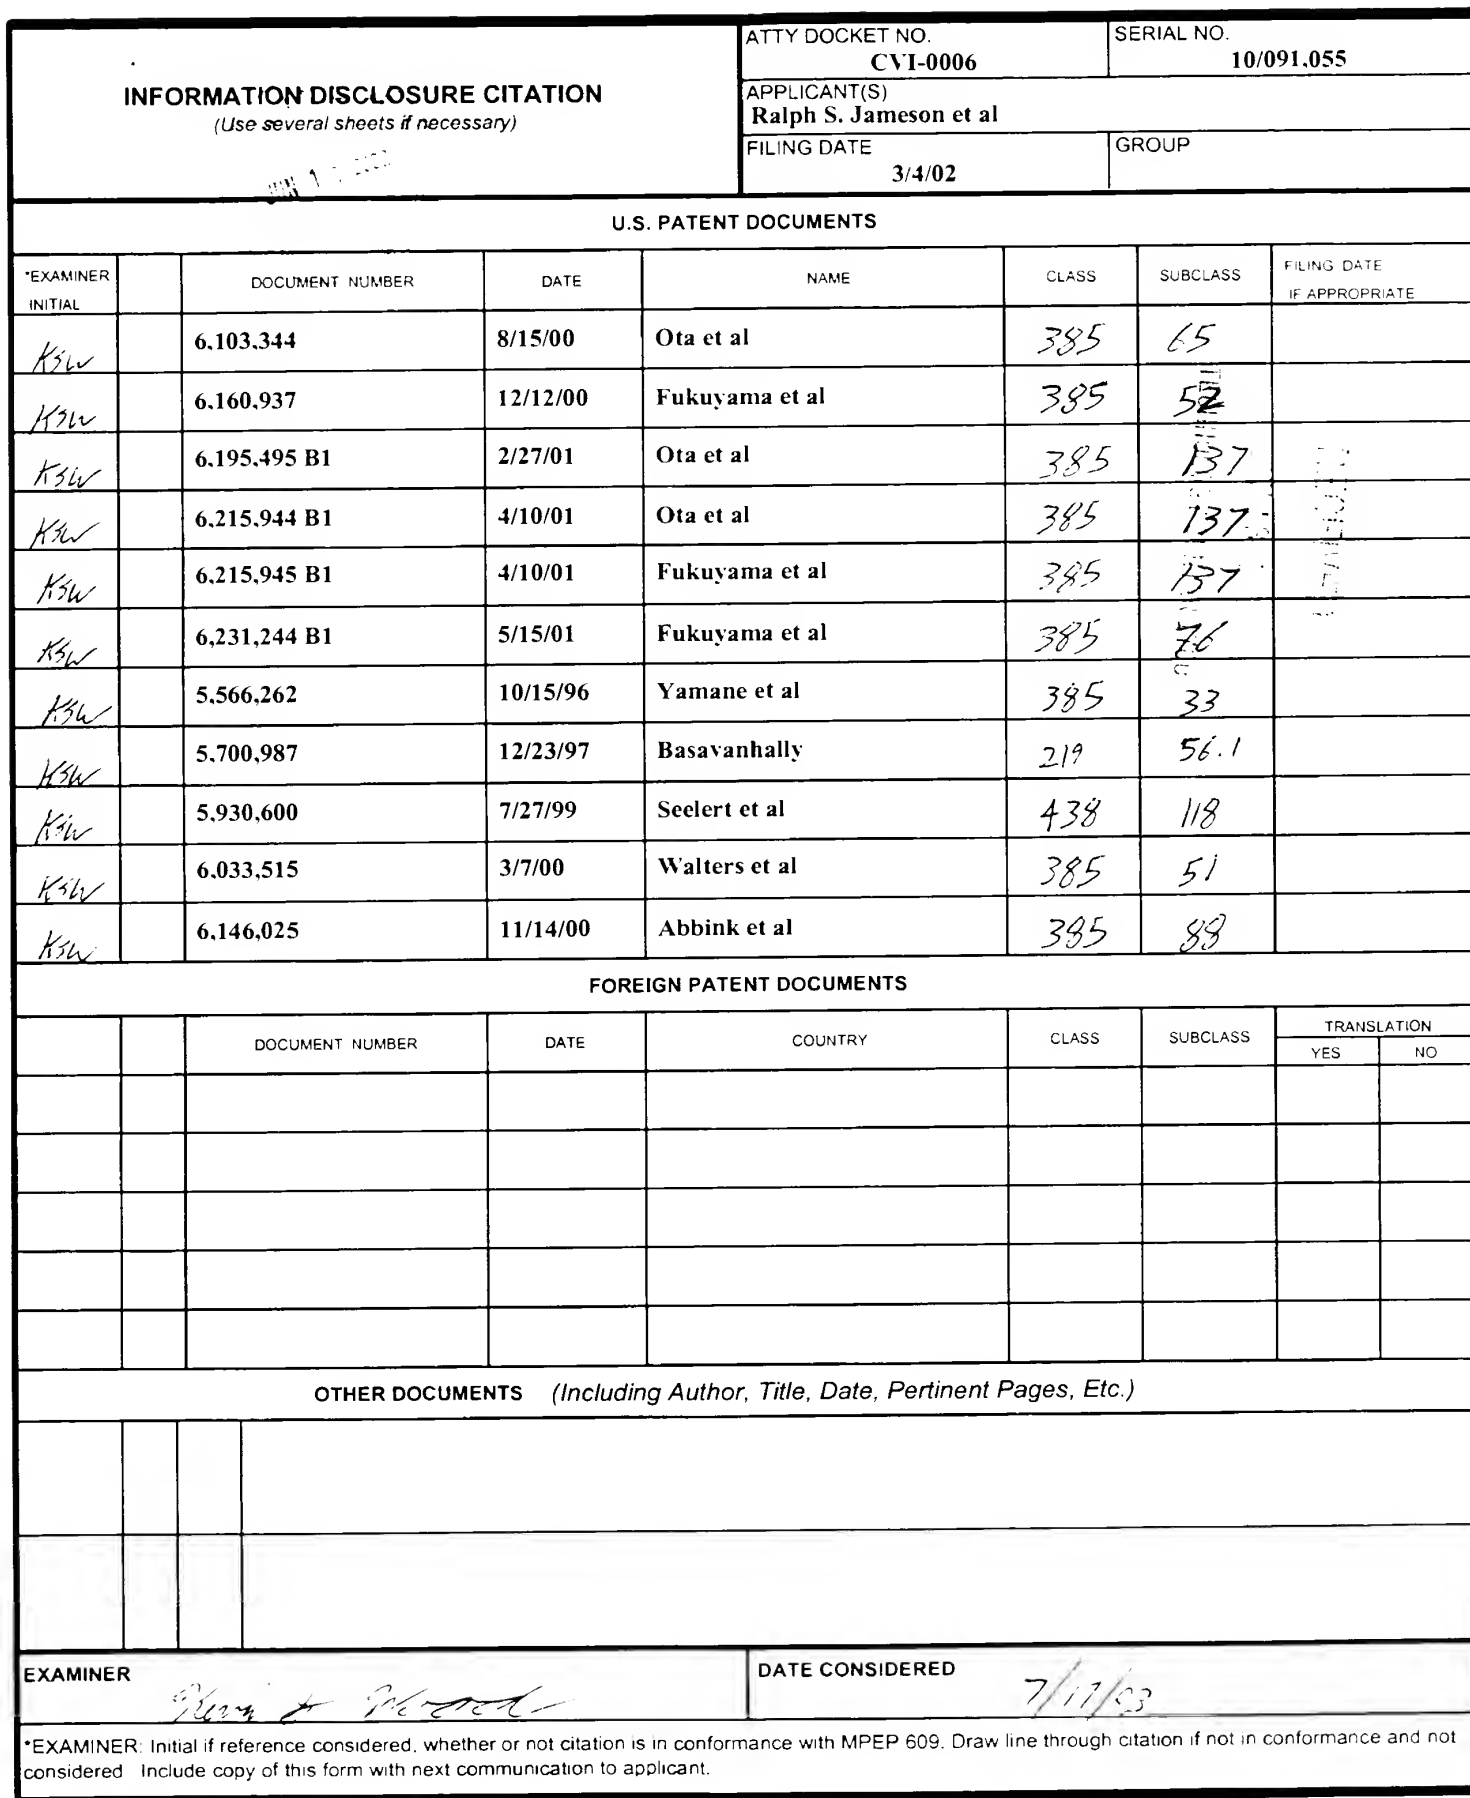 INFORMATION DISCLOSURE CITATION
(Use several sheets if necessary)
ATTY DOCKET NO.
CVI-0006
SERIAL NO.
10/091,055
APPLICANT(S)
Ralph S. Jameson et al
FILING DATE
3/4/02
GROUP
U.S. PATENT DOCUMENTS
*EXAMINER INITIAL DOCUMENT NUMBER DATE NAME CLASS SUBCLASS FILING DATE IF APPROPRIATE
KSW 6,103,344 8/15/00 Ota et al 385 65
KSW 6,160,937 12/12/00 Fukuyama et al 385 52
KSW 6,195,495 B1 2/27/01 Ota et al 385 137
KSW 6,215,944 B1 4/10/01 Ota et al 385 137
KSW 6,215,945 B1 4/10/01 Fukuyama et al 385 137
KSW 6,231,244 B1 5/15/01 Fukuyama et al 385 76
KSW 5,566,262 10/15/96 Yamane et al 385 33
KSW 5,700,987 12/23/97 Basavanhally 219 56.1
KSW 5,930,600 7/27/99 Seelert et al 438 118
KSW 6,033,515 3/7/00 Walters et al 385 51
KSW 6,146,025 11/14/00 Abbink et al 385 88
FOREIGN PATENT DOCUMENTS
DOCUMENT NUMBER DATE COUNTRY CLASS SUBCLASS TRANSLATION
YES NO
OTHER DOCUMENTS (Including Author, Title, Date, Pertinent Pages, Etc.)
EXAMINER
Kevin S Wood
DATE CONSIDERED
7/17/03
*EXAMINER: Initial if reference considered, whether or not citation is in conformance with MPEP 609. Draw line through citation if not in conformance and not
considered Include copy of this form with next communication to applicant.